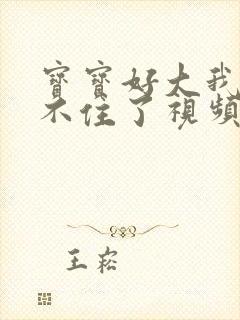 寶寶好大我
不住了視頻
王崧